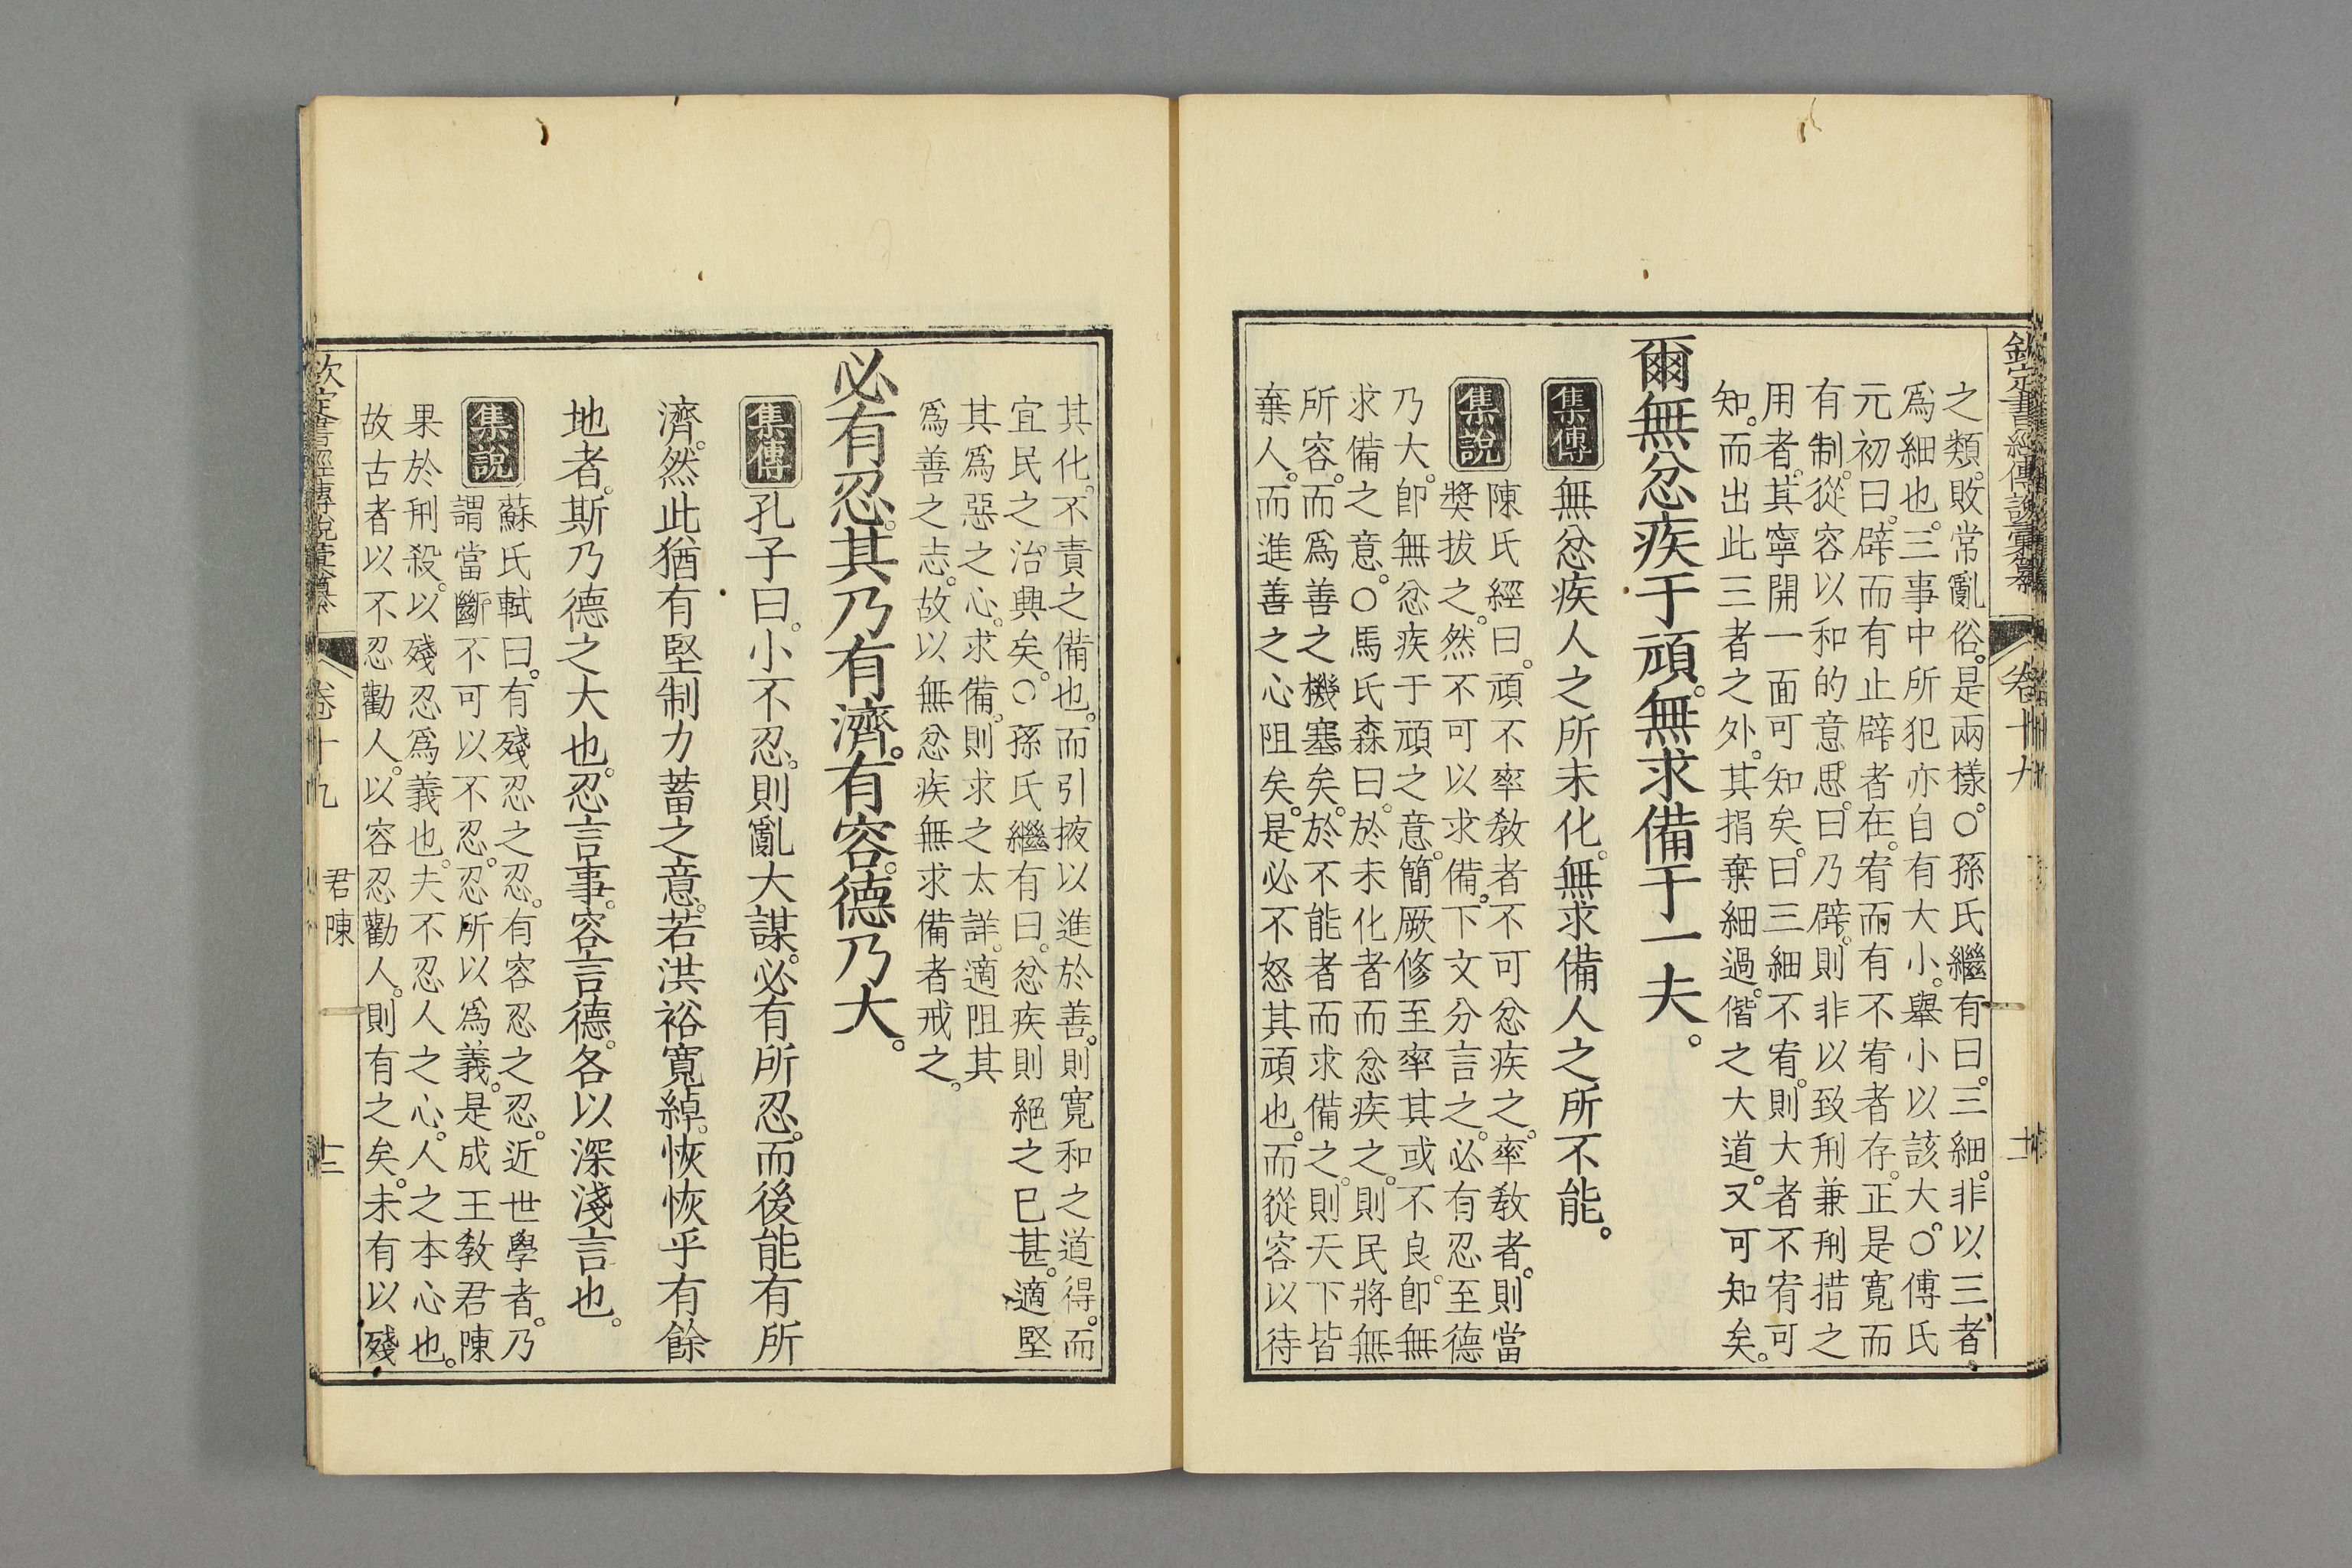 欽定書經傳說彙纂 卷十九
之類。敗常亂俗。是兩樣。○孫氏繼有曰。三細。非以三者
爲細也。三事中所犯亦自有大小。舉小以該大。○傅氏
元初曰。辟而有止辟者在。宥而有不宥者存。正是寬而
有制。從容以和的意思。曰乃辟。則非以致刑兼刑措之
用者。其寧開一面可知矣。曰三細不宥。則大者不宥可
知。而出此三者之外。其捐棄細過。偕之大道。又可知矣。
爾無忿疾于頑。無求備于一夫。
集傳 無忿疾人之所未化。無求備人之所不能。
集說 陳氏經曰。頑不率敎者不可忿疾之。率敎者。則當
奬拔之。然不可以求備。下文分言之。必有忍至德
乃大。卽無忿疾于頑之意。簡厥修至率其或不良。卽無
求備之意。○馬氏森曰。於未化者而忿疾之。則民將無
所容。而爲善之機塞矣。於不能者而求備之。則天下皆
棄人。而進善之心阻矣。是必不怒其頑也。而從容以待
其化。不責之備也。而引掖以進於善。則寬和之道得。而
宜民之治興矣。○孫氏繼有曰。忿疾則絕之已甚。適堅
其爲惡之心。求備。則求之太詳。適阻其
爲善之志。故以無忿疾無求備者戒之。
必有忍。其乃有濟。有容。德乃大。
集傳 孔子曰。小不忍。則亂大謀。必有所忍。而後能有所
濟。然此猶有堅制力蓄之意。若洪裕寬綽。恢恢乎有餘
地者。斯乃德之大也。忍言事。容言德。各以深淺言也。
集說 蘇氏軾曰。有殘忍之忍。有容忍之忍。近世學者。乃
謂當斷不可以不忍。忍所以爲義。是成王敎君陳
果於刑殺。以殘忍爲義也。夫不忍人之心。人之本心也。
故古者以不忍勸人。以容忍勸人。則有之矣。未有以殘
欽定書經傳說彙纂 卷十九 君陳 十二